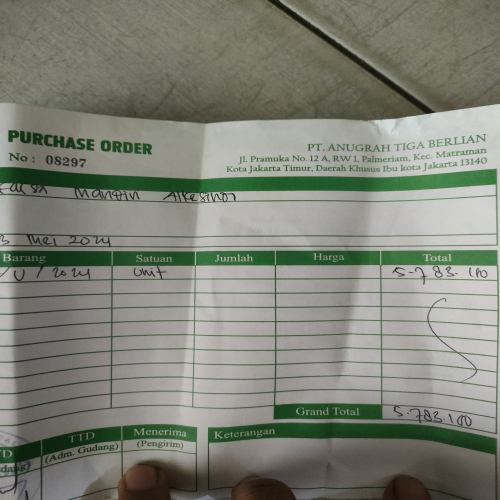 PURCHASE ORDER
No : 08297
PT. ANUGRAH TIGA BERLIAN
Jl. Pramuka No. 12 A, RW 1, Palmeriam, Kec. Matraman
Kota Jakarta Timur, Daerah Khusus Ibu kota Jakarta 13140
Mandiri Alkesindo
3 Mei 2024
Barang Satuan Jumlah Harga Total
/ V / 2024 Unit 5.783.100
Grand Total 5.783.100
TTD Menerima Keterangan
(Adm. Gudang) (Pengirim)